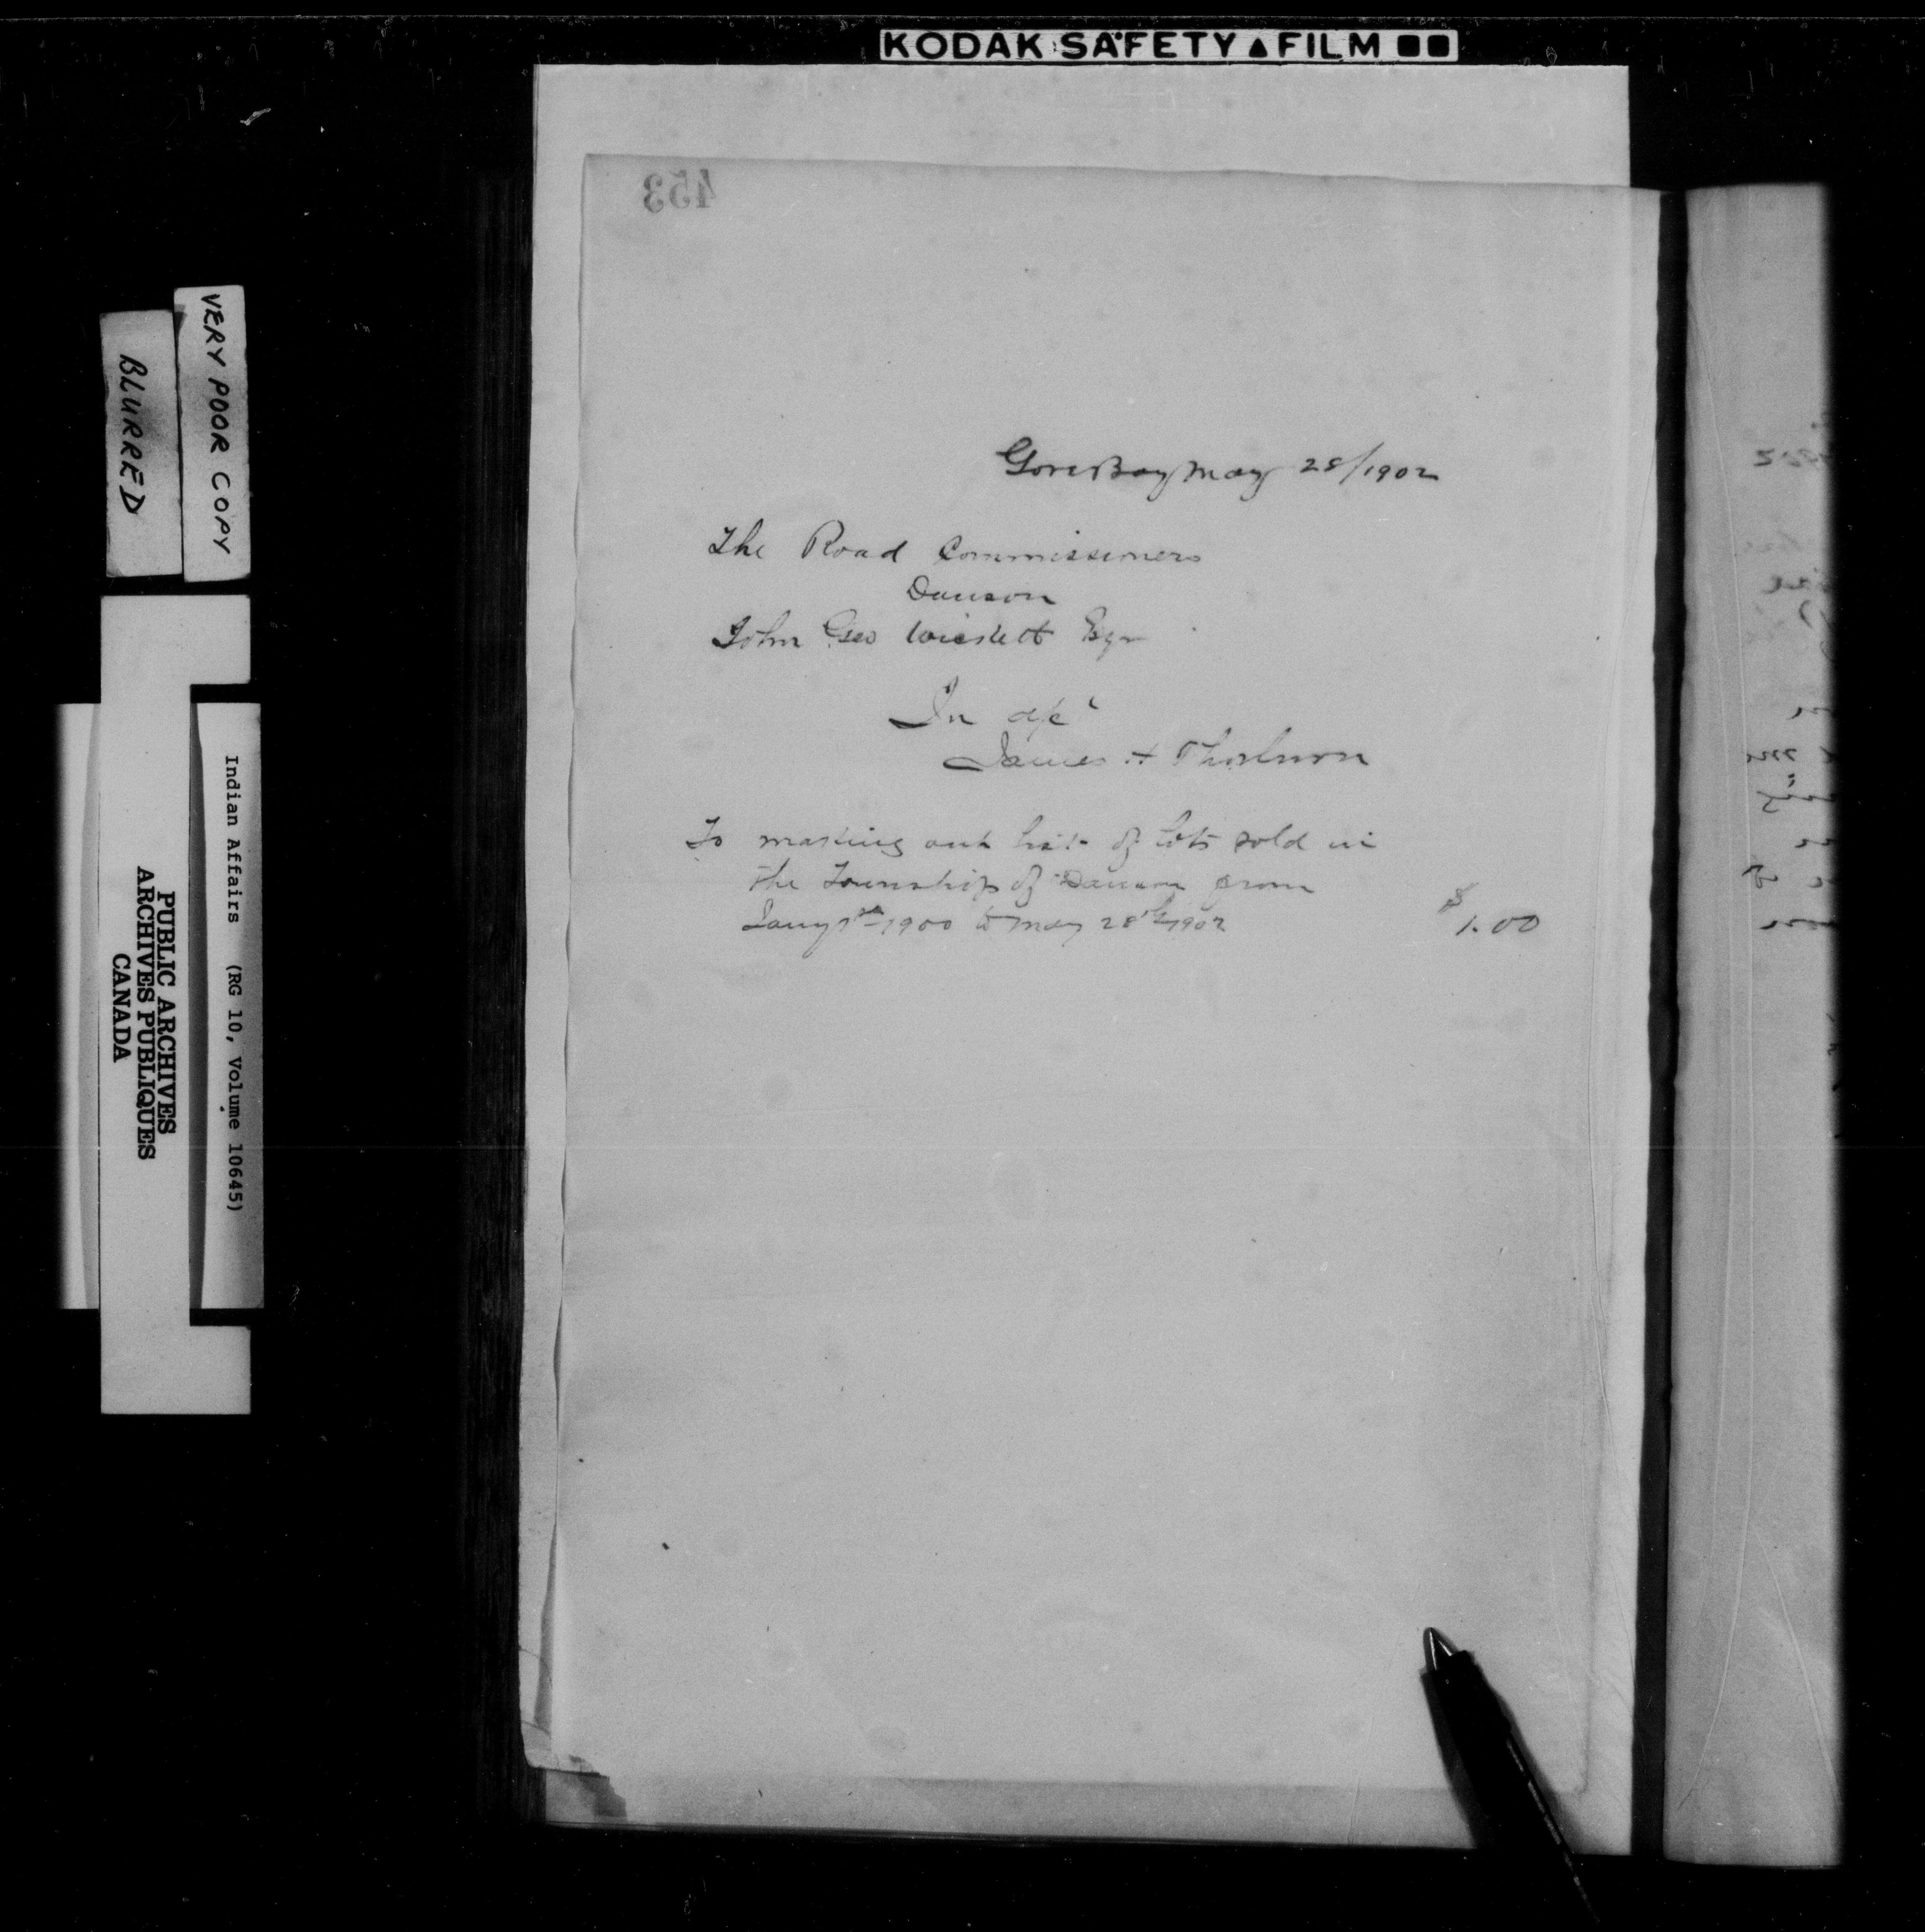 KODAK SAFETY FILM
453
Gore Bay May 28/1902
The Road Commissioners
Dawson
John Geo Esqr
In a/c
James H Thorburn
To making out list of lots sold in
the Township of Dawson from
Jany 1st 1900 to May 28th 1902
$1.00
VERY POOR COPY
BLURRED
Indian Affairs (RG 10, Volume 10645)
PUBLIC ARCHIVES
ARCHIVES PUBLIQUES
CANADA